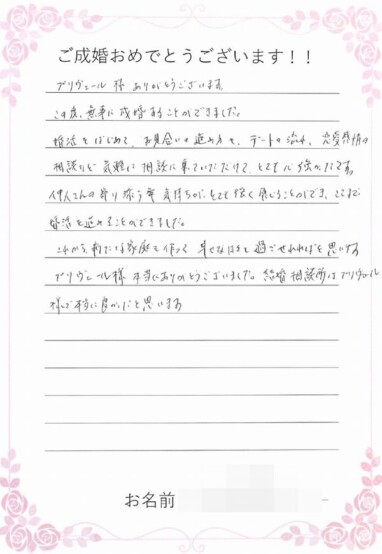 ご成婚おめでとうございます！！
ブリヴェール 様 ありがとうございます
この度、無事に成婚することができました。
婚活をはじめて、お見合いの進め方や、デートの流れ、恋愛感情の
相談など気軽に相談に乗っていただけて、とても心強かったです。
仲人さんの寄り添う気持ちが、とても強く感じることができ、ここまで
婚活を進めることができました。
これから新たな家庭を作って 幸せな日々を過ごせればと思います
ブリヴェール様 本当にありがとうございました。結婚相談所はブリヴェール
様で本当に良かったと思います
お名前